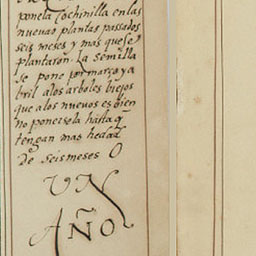 ponela Cochinilla en las
nueuao plantas passados
seis meses y mas que se
plantaron. La semilla
se pone por março y a
bril a los arboles biejos
que a los nueuos es bien
no ponersela hasta q̃
tengan mas hedad
De seis meses O
VN
AÑO